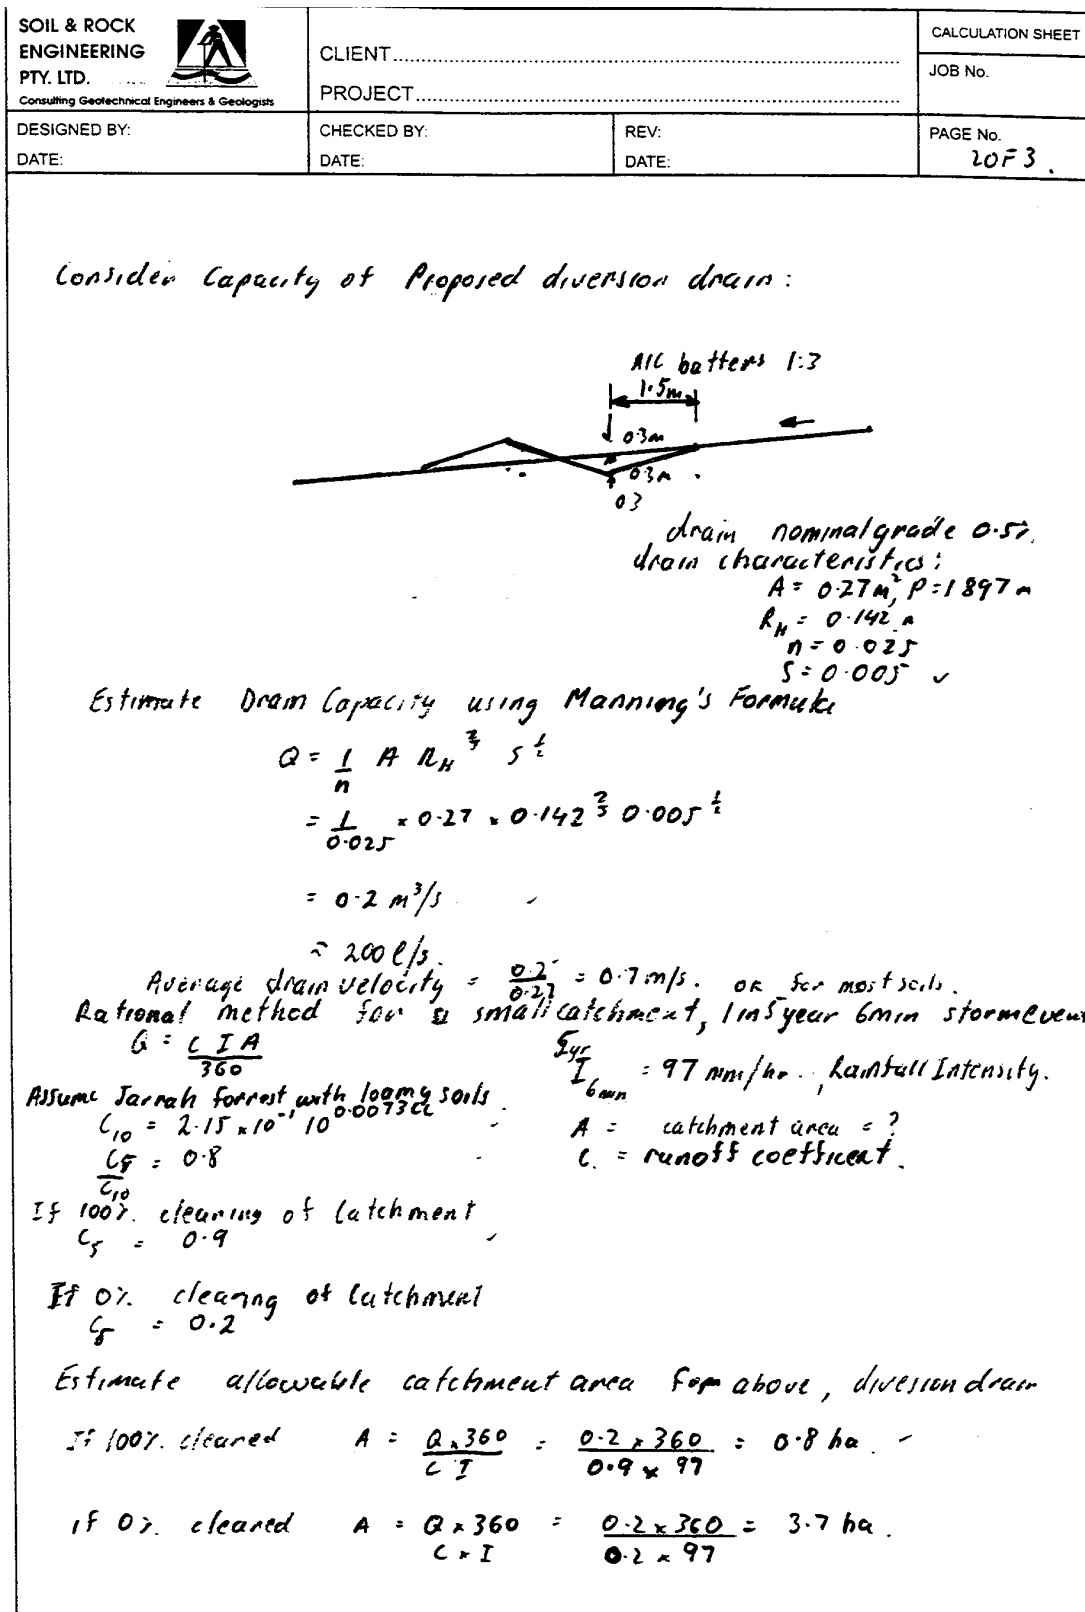 SOIL & ROCK
ENGINEERING
PTY. LTD.
Consulting Geotechnical Engineers & Geologists
CLIENT
PROJECT
CALCULATION SHEET
JOB No.
DESIGNED BY:
DATE:
CHECKED BY:
DATE:
REV:
DATE:
PAGE No.
2 OF 3.
Consider Capacity of Proposed diversion drain:
All batters 1:3
1.5m
0.3m
0.3m
0.3
drain nominal grade 0.5%.
drain characteristics:
A = 0.27m², P = 1.897m
R_H = 0.142 m
n = 0.025
S = 0.005 ✓
Estimate Drain Capacity using Manning's Formula
Q = 1/n A R_H^⅔ S^½
= 1/0.025 × 0.27 × 0.142^⅔ 0.005^½
= 0.2 m³/s
≈ 200 l/s.
Average drain velocity = 0.2/0.27 = 0.7 m/s. OK for most soils.
Rational method for a small catchment, 1 in 5 year 6min storm event
Q = C I A/360
5yr I 6min = 97 mm/hr., Rainfall Intensity.
Assume Jarrah forrest, with loamy soils
C₁₀ = 2.15 × 10⁻¹ 10^0.0073CL
A = catchment area = ?
C₅/C₁₀ = 0.8
C. = runoff coefficent.
If 100% clearing of Catchment
C₅ = 0.9
If 0% clearing of Catchment
C₅ = 0.2
Estimate allowable catchment area for above, divesion drain
If 100% cleared A = Q × 360/C I = 0.2 × 360/0.9 × 97 = 0.8 ha.
if 0% cleared A = Q × 360/C × I = 0.2 × 360/0.2 × 97 = 3.7 ha.